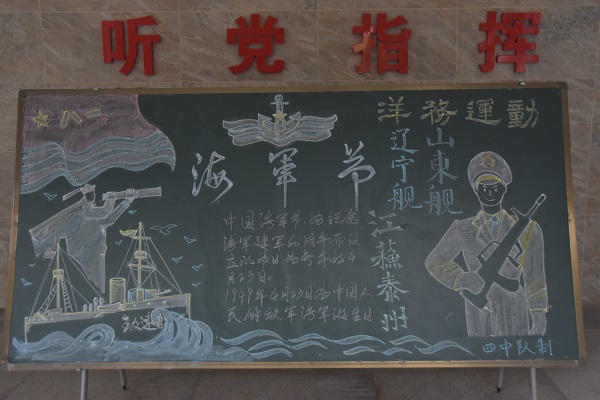 听党指挥
八一
洋務運動
海軍节
辽宁舰
山東舰
江蘇泰州
中国海军节,为纪念
海军建军60周年而设
立的节日为每年的4
月23日。
1949年4月23日为中国人
民解放军海军诞生日
致远
四中队制